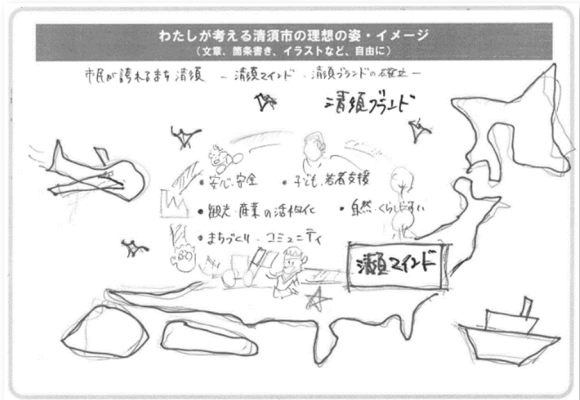 わたしが考える清須市の理想の姿・イメージ
（文章、箇条書き、イラストなど、自由に）
市民が誇れるまち清須 － 清須マインド・清須ブランドの確立－
清須ブランド
・安心・安全 ・子ども、若者支援
・観光・産業の活性化 ・自然・くらしやすい
・まちづくり・コミュニティ
清須マインド